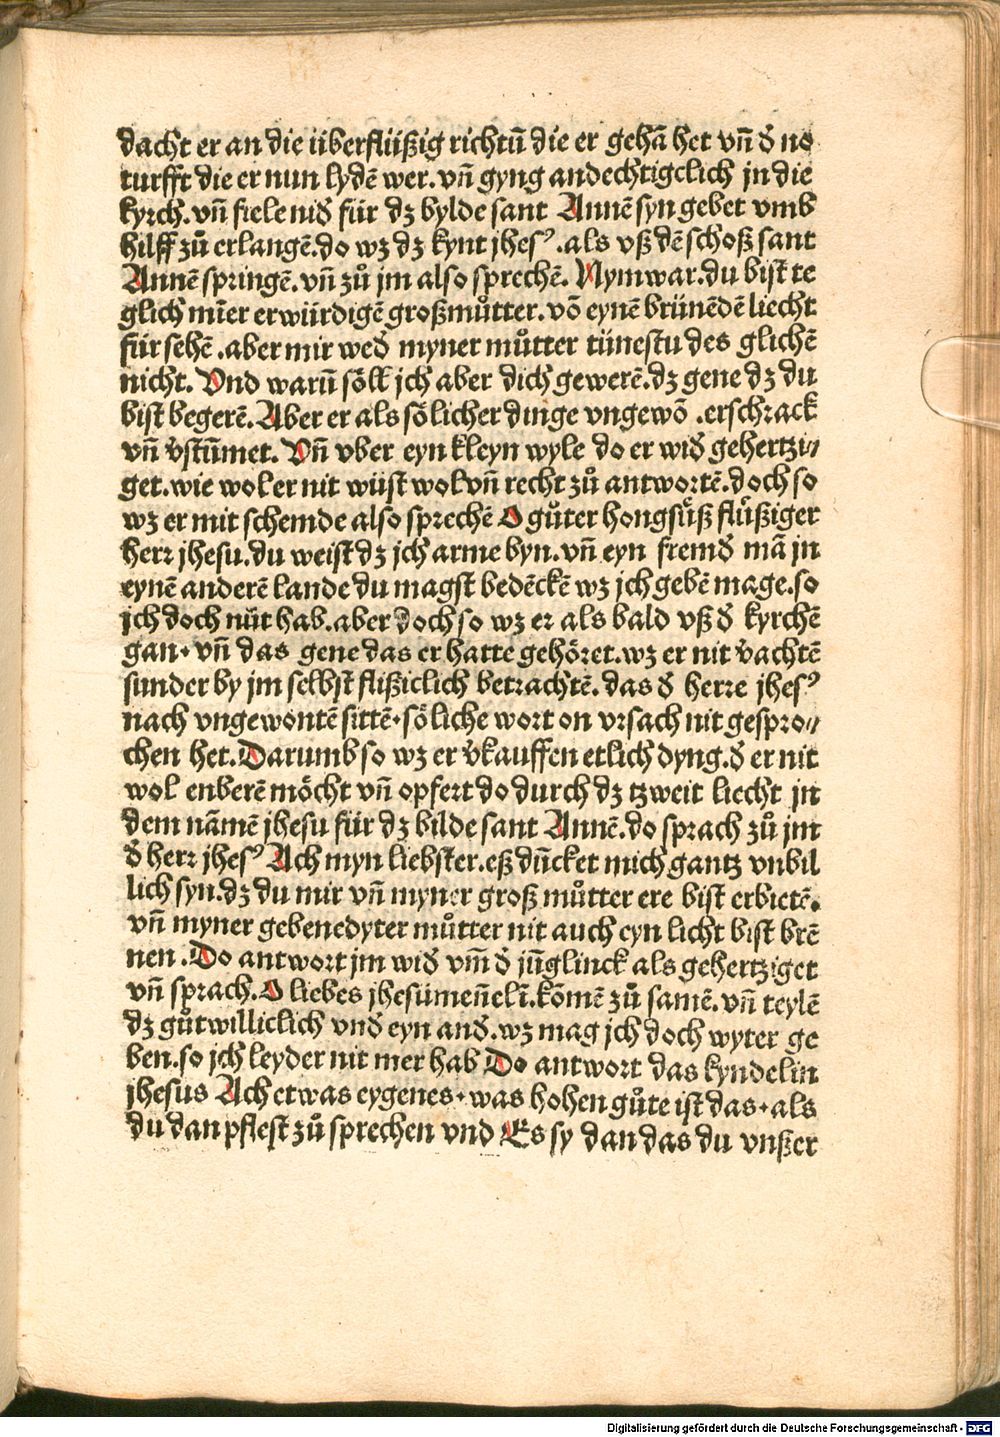 dacht er an die überflüßig richtū die er gehā het vn̄ đ no
turfft die er nun lydē wer. vn̄ gyng andechtigclich jn die
kyrch. vn̄ fiele niđ für dz bylde sant Annē syn gebet vmb
hilff zů erlangē. do wz dz kynt jhesꝰ. als vß dē schoß sant
Annē springē. vn̄ zů jm also sprechē. Nym war. du bist te
glich mīer erwürdigē großmůtter. vō eynē brünēdē liecht
für sehē. aber mir weđ myner můtter tünestu des glichē
nicht. Vnd warū söll jch aber dich gewerē. dz gene dz du
bist begerē. Aber er als sölicher dinge vngewō. erschrack
vn̄ v̄stūmet. Vn̄ vber eyn kleyn wyle do er wiđ gehertzi⸗
get. wie wol er nit wüst wol vn̄ recht zů antwortē. doch so
wz er mit schemde also sprechē O gůter hongsüß flüßiger
herr jhesu. du weist dz jch arme byn. vn̄ eyn fremđ mā jn
eynē anderē lande du magst bedēckē wz jch gebē mage. so
jch doch nüt hab. aber doch so wz er als bald vß đ kyrchē
gan. vn̄ das gene das er hatte gehöret. wz er nit v̄achtē
sunder by jm selbst flißiclich betrachtē. das đ herre jhesꝰ
nach vngewontē sittē. söliche wort on vrsach nit gespro⸗
chen het. Darumb so wz er v̄kauffen etlich dyng. đ er nit
wol enberē möcht vn̄ opfert do durch dz tzweit liecht jn
dem nāmē jhesu für dz bilde sant Annē. do sprach zů jm
đ herr jhesꝰ Ach myn liebster. eß dūcket mich gantz vnbil
lich syn. dz du mir vn̄ myner groß můtter ere bist erbietē.
vn̄ myner gebenedyter můtter nit auch eyn licht bist brē
nen. Do antwort jm wiđ vm̄ đ jūglinck als gehertziget
vn̄ sprach. O liebes jhesümen̄elī. kōmē zů samē. vn̄ teylē
dz gůtwilliclich vnđ eyn anđ. wz mag jch doch wyter ge
ben. so jch leyder nit mer hab Do antwort das kyndelin
jhesus Ach etwas eygenes. was hohen gůte ist das. als
du dan pflest zů sprechen vnd Es sy dan das du vnßer
Digitalisierung gefördert durch die Deutsche Forschungsgemeinschaft - DFG